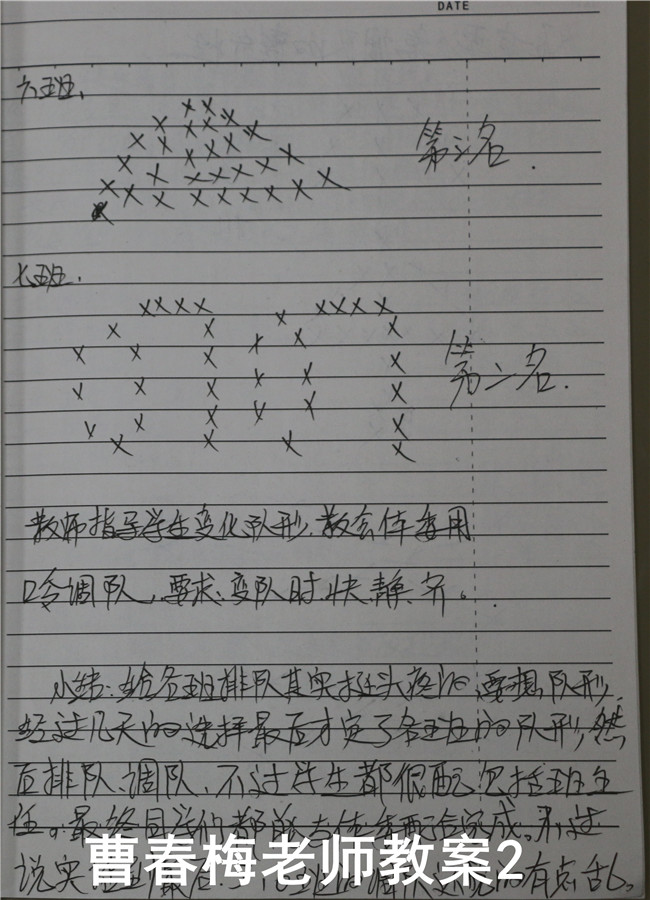 DATE
六班.
第三名.
七班.
第二名.
教师指导学生变化队形.教会体委用
口令调队,要求:变队时快、静、齐。
小结:给各班排队其实挺头疼的,要想队形.
经过几天的选择最后才定了各班的队形,然
后排队、调队、不过学生都很配 包括班主
任。最终同学们都能 体委配合完成。不过
说实 最后 调队 的有点乱。
曹春梅老师教案2